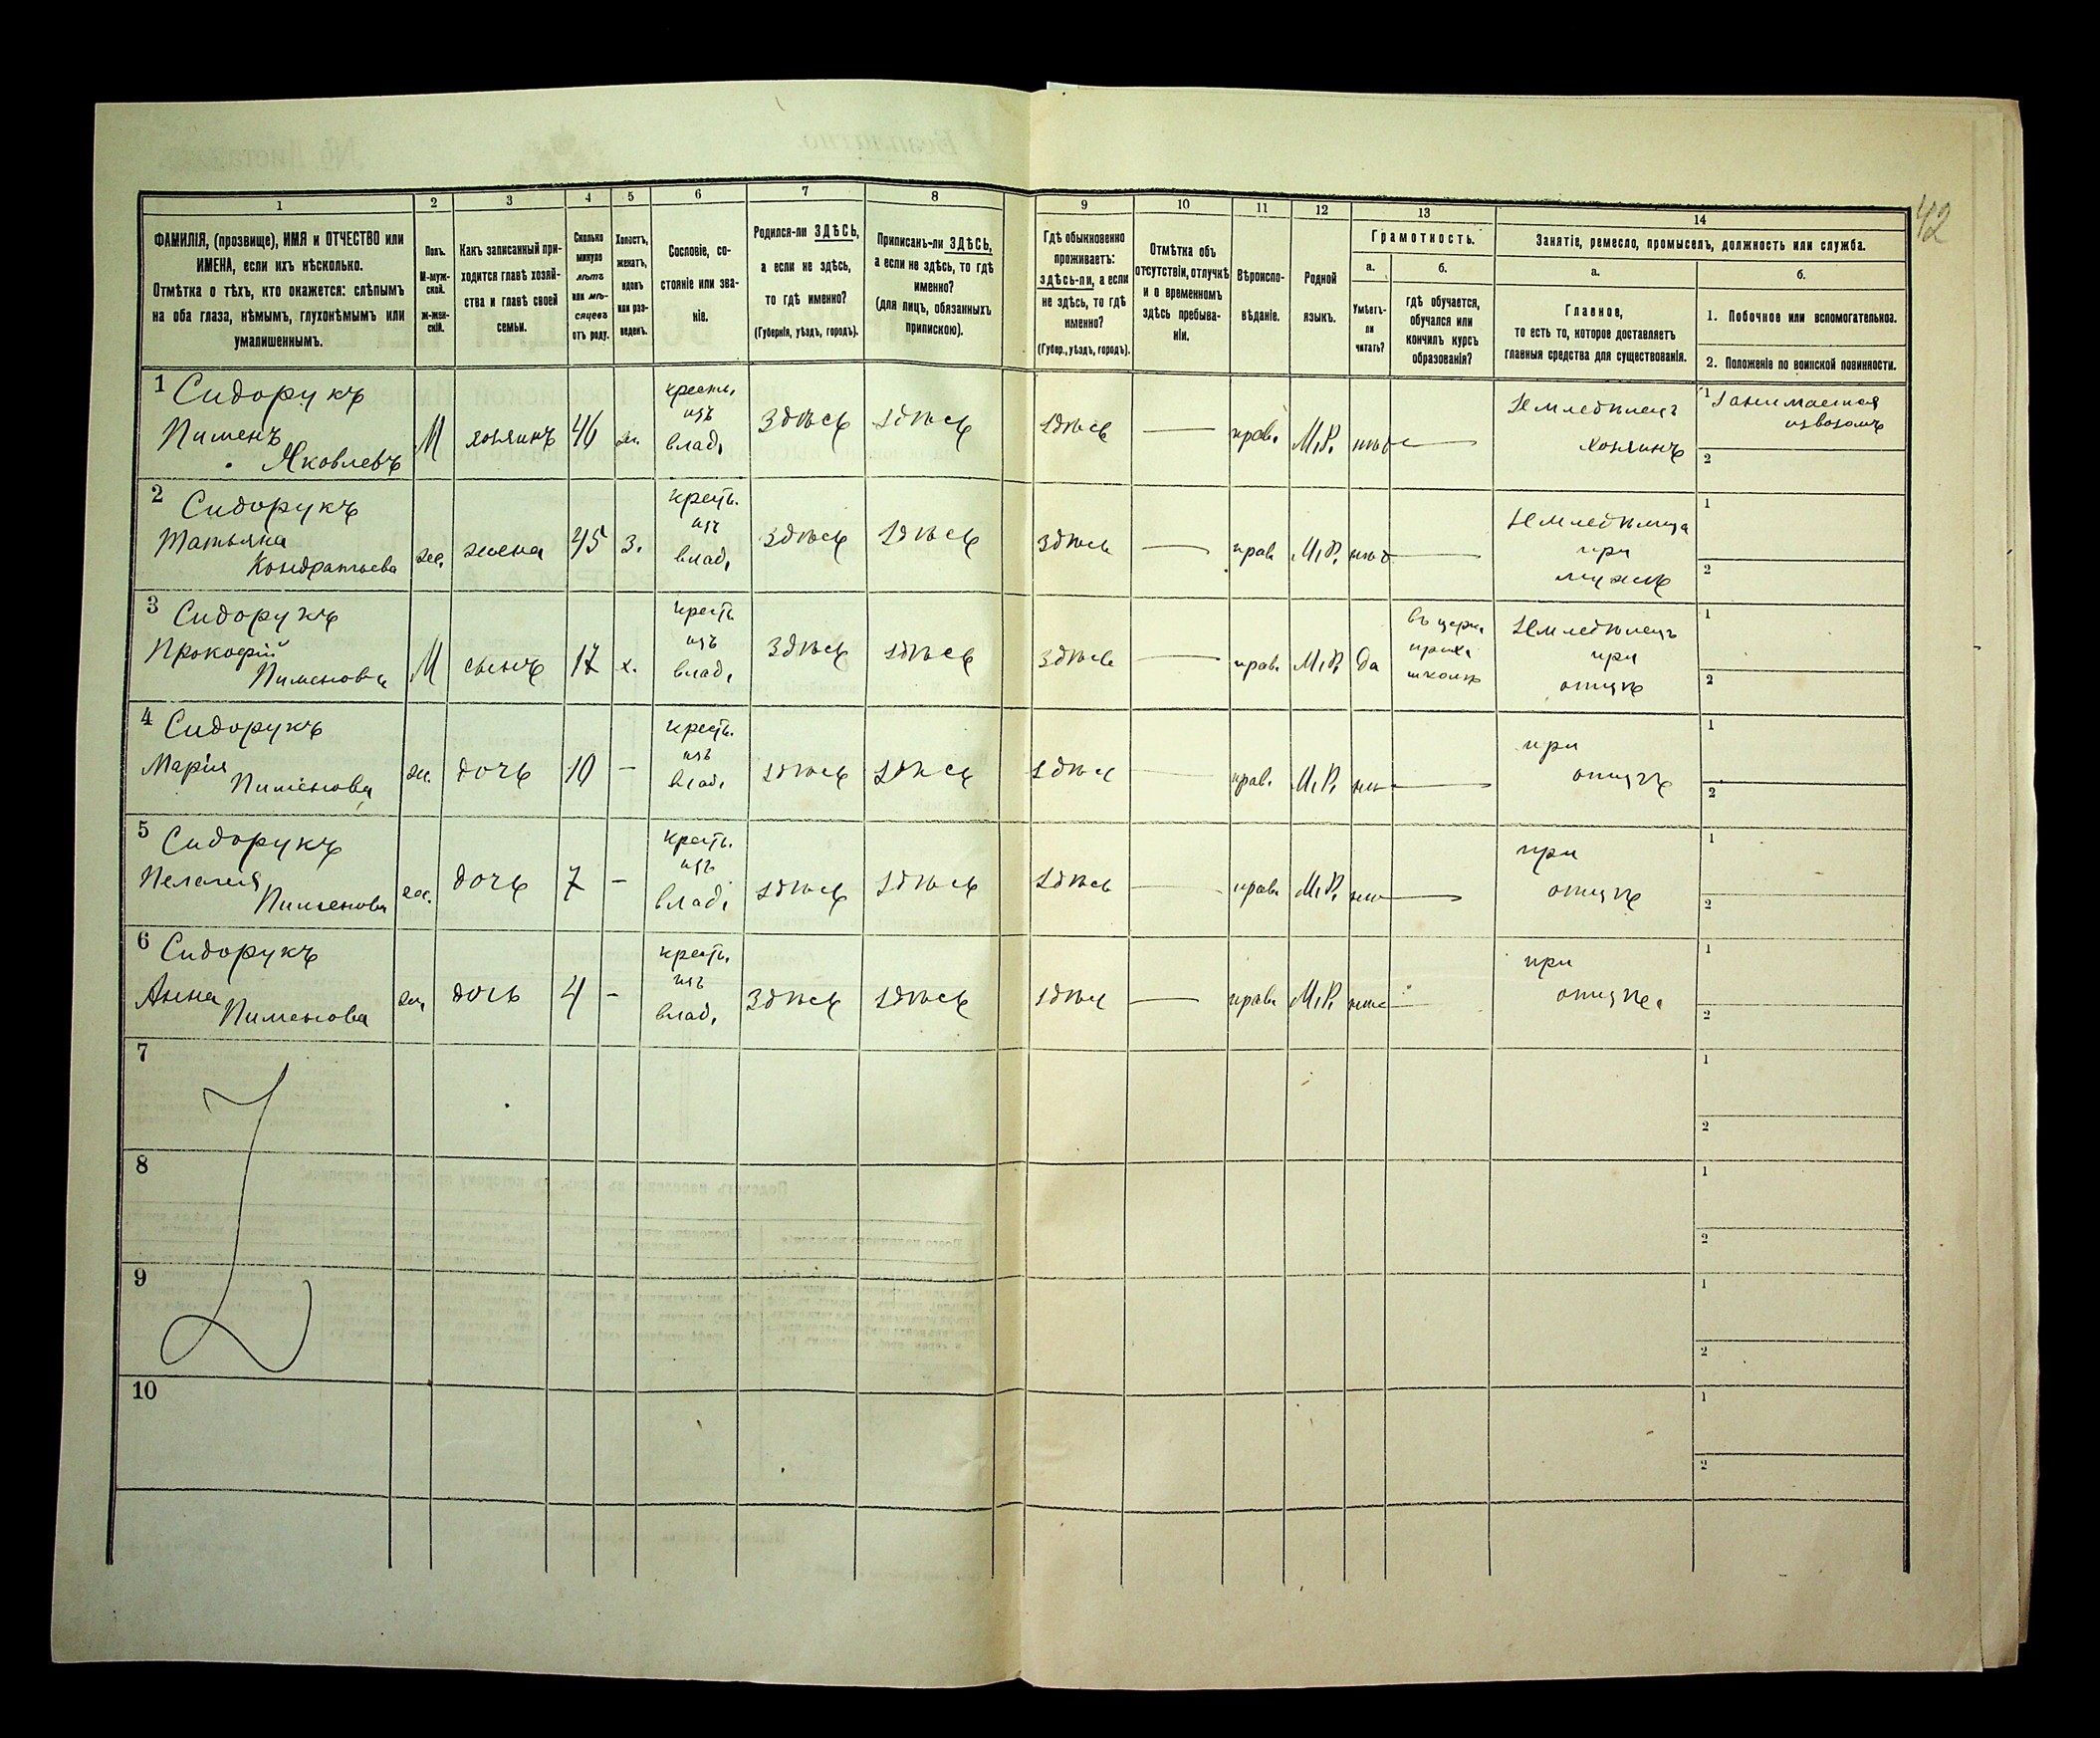 42
1 2 3 4 5 6 7 8 9 10 11 12 13 14
ФАМИЛІЯ, (прозвище), ИМЯ и ОТЧЕСТВО или
ИМЕНА, если ихъ нѣсколько.
Отмѣтка о тѣхъ, кто окажется: слѣпымъ
на оба глаза, нѣмымъ, глухонѣмымъ или
умалишеннымъ.
Полъ.
М-муж-
ской.
Ж-жен-
скій.
Какъ записанный при-
ходится главѣ хозяй-
ства и главѣ своей
семьи.
Сколько
минуло
лѣтъ
или мѣ-
сяцевъ
отъ роду.
Холостъ,
женатъ,
вдовъ
или раз-
веденъ.
Сословіе, со-
стояніе или зва-
ніе.
Родился-ли ЗДѢСЬ,
а если не здѣсь,
то гдѣ именно?
(Губернія, уѣздъ, городъ).
Приписанъ-ли ЗДѢСЬ,
а если не здѣсь, то гдѣ
именно?
(для лицъ, обязанныхъ
припискою).
Гдѣ обыкновенно
проживаетъ:
здѣсь-ли, а если
не здѣсь, то гдѣ
именно?
(Губер., уѣздъ, городъ).
Отмѣтка объ
отсутствіи, отлучкѣ
и о временномъ
здѣсь пребыва-
ніи.
Вѣроиспо-
вѣданіе.
Родной
языкъ.
Грамотность.
а.
Умѣетъ-
ли
читать?
б.
Гдѣ обучается,
обучался или
кончилъ курсъ
образованія?
Занятіе, ремесло, промыселъ, должность или служба.
а.
Главное,
то есть то, которое доставляетъ
главныя средства для существованія.
б.
1. Побочное или вспомогательное.
2. Положеніе по воинской повинности.
1 Сидорукъ
Пименъ
Яковлевъ
М хозяинъ 46 ж.
крестъ.
изъ
влад.
Здѣсь здѣсь здѣсь — прав. М.Р. нѣт —
Земледѣлецъ
хозяинъ
1 Занимается
извозомъ
2
2 Сидорукъ
Татьяна
Кондратьева
же. жена 45 з.
крест.
изъ
влад.
Здѣсь здѣсь Здѣсь — прав М.Р. нѣт —
Земледѣлица
при
мужѣ
1
2
3 Сидорукъ
Прокофій
Пименовъ
М сынъ 17 х.
крест.
изъ
влад.
Здѣсь здѣсь Здѣсь — прав. М.Р. да
въ церк.
прих.
школѣ
Земледѣлецъ
при
отцѣ
1
2
4 Сидорукъ
Марія
Пименова
же. дочь 10 —
крест.
изъ
влад.
здѣсь здѣсь здѣсь — прав. М.Р. —
при
отцѣ
1
2
5 Сидорукъ
Пелагия
Пименова
же. дочь 7 —
крест.
изъ
влад.
здѣсь здѣсь здѣсь — прав. М.Р. —
при
отцѣ
1
2
6 Сидорукъ
Анна
Пименова
же. дочь 4 —
крест.
изъ
влад.
Здѣсь здѣсь здѣсь — прав. М.Р. —
при
отцѣ.
1
2
7
1
2
8
1
2
9
1
2
10
1
2